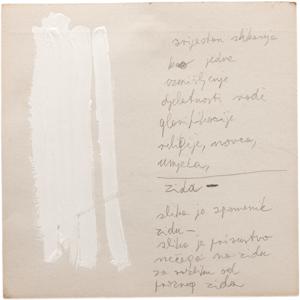 svijestan slikanja
kao jedno
osmišljenje
djelatnosti vodi
glorifikacije
religije, novca,
umjeća,
zida –
slika je spomenik
zidu –
slika je prisustvo
nečega na zidu
za razliku od
praznog zida